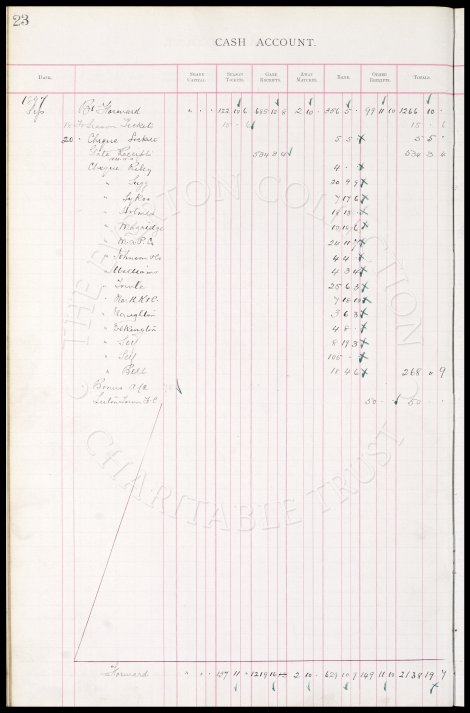 23
CASH ACCOUNT.
DATE. SHARE CAPITAL. SEASON TICKETS. GATE RECEIPTS. AWAY MATCHES. BANK. OTHER RECEIPTS. TOTALS.
1897
Sep Bt Forward " " " 122 10 6 685 10 8 2 10 - 356 5 - 99 11 10 1266 10 -
To Season Tickets 15 - 6 15 - 6
20 " Cheque 5 5 - 5 5 -
Gate Receipts 534 3 4 534 3 4
Cheque Riley 4 - -
" 20 9 9
" Sykes 7 17 6
" 14 13 -
" 10 14 6
" 24 11 7
" Johnson & Co 4 4 -
" Williams 4 3 4
" Towle 25 6 3
" 7 10 10
" Naughton 3 6 3
" Elkington 4 8 -
" Self 8 19 3
" Self 105 - -
" Bell 18 4 6 268 0 9
Bonus a/c
Luton Town F.C. 50 - - 50 - -
Forward " " " 137 11 - 1219 14 - 2 10 - 629 10 9 149 11 10 2138 19 7
THE FOOTBALL
COLLECTION
CHARITABLE TRUST